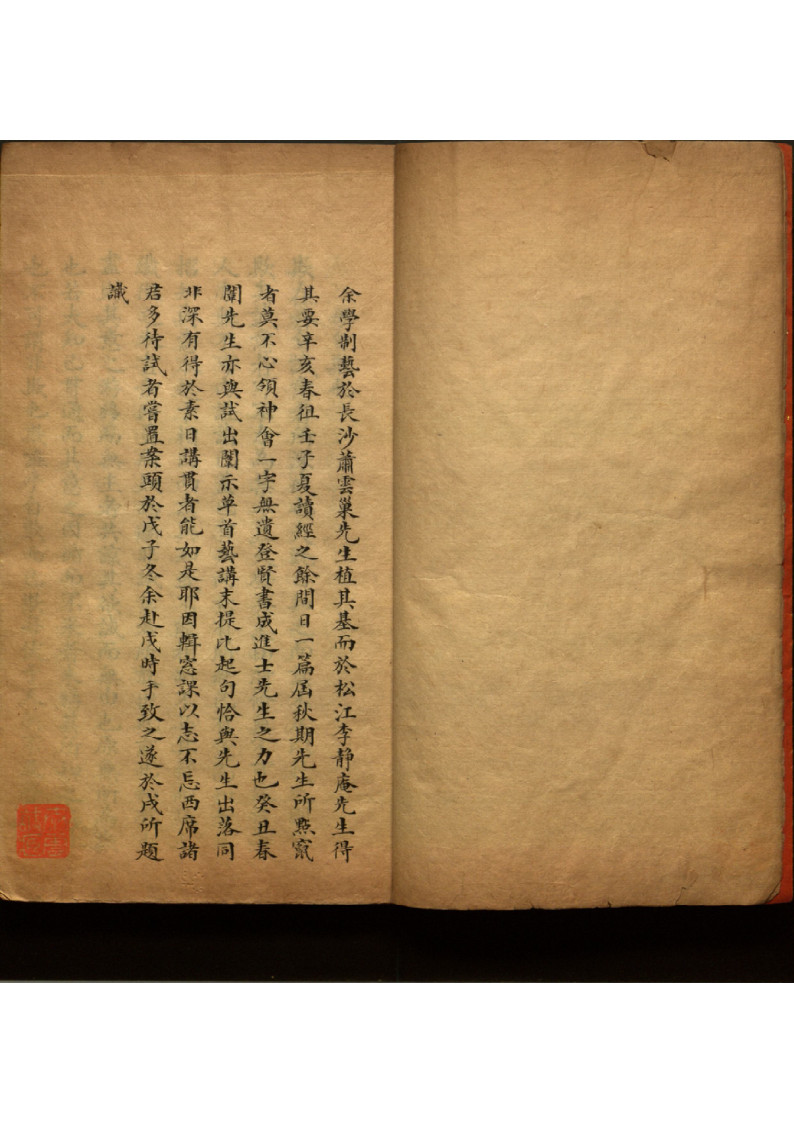 余學制藝於長沙蕭雲巢先生植其基而於松江李靜庵先生得
其要辛亥春徂壬子夏讀經之餘間日一篇屆秋期先生所㸃竄
者莫不心領神會一字無遺登賢書成進士先生之力也癸丑春
闈先生亦與試出闈示草首藝講末提比起句恰與先生出落同
非深有得於素日講貫者能如是耶因輯窓課以志不忘西席諸
君多待試者嘗置案頭於戊子冬余赴戍時手致之遂於戍所題
識